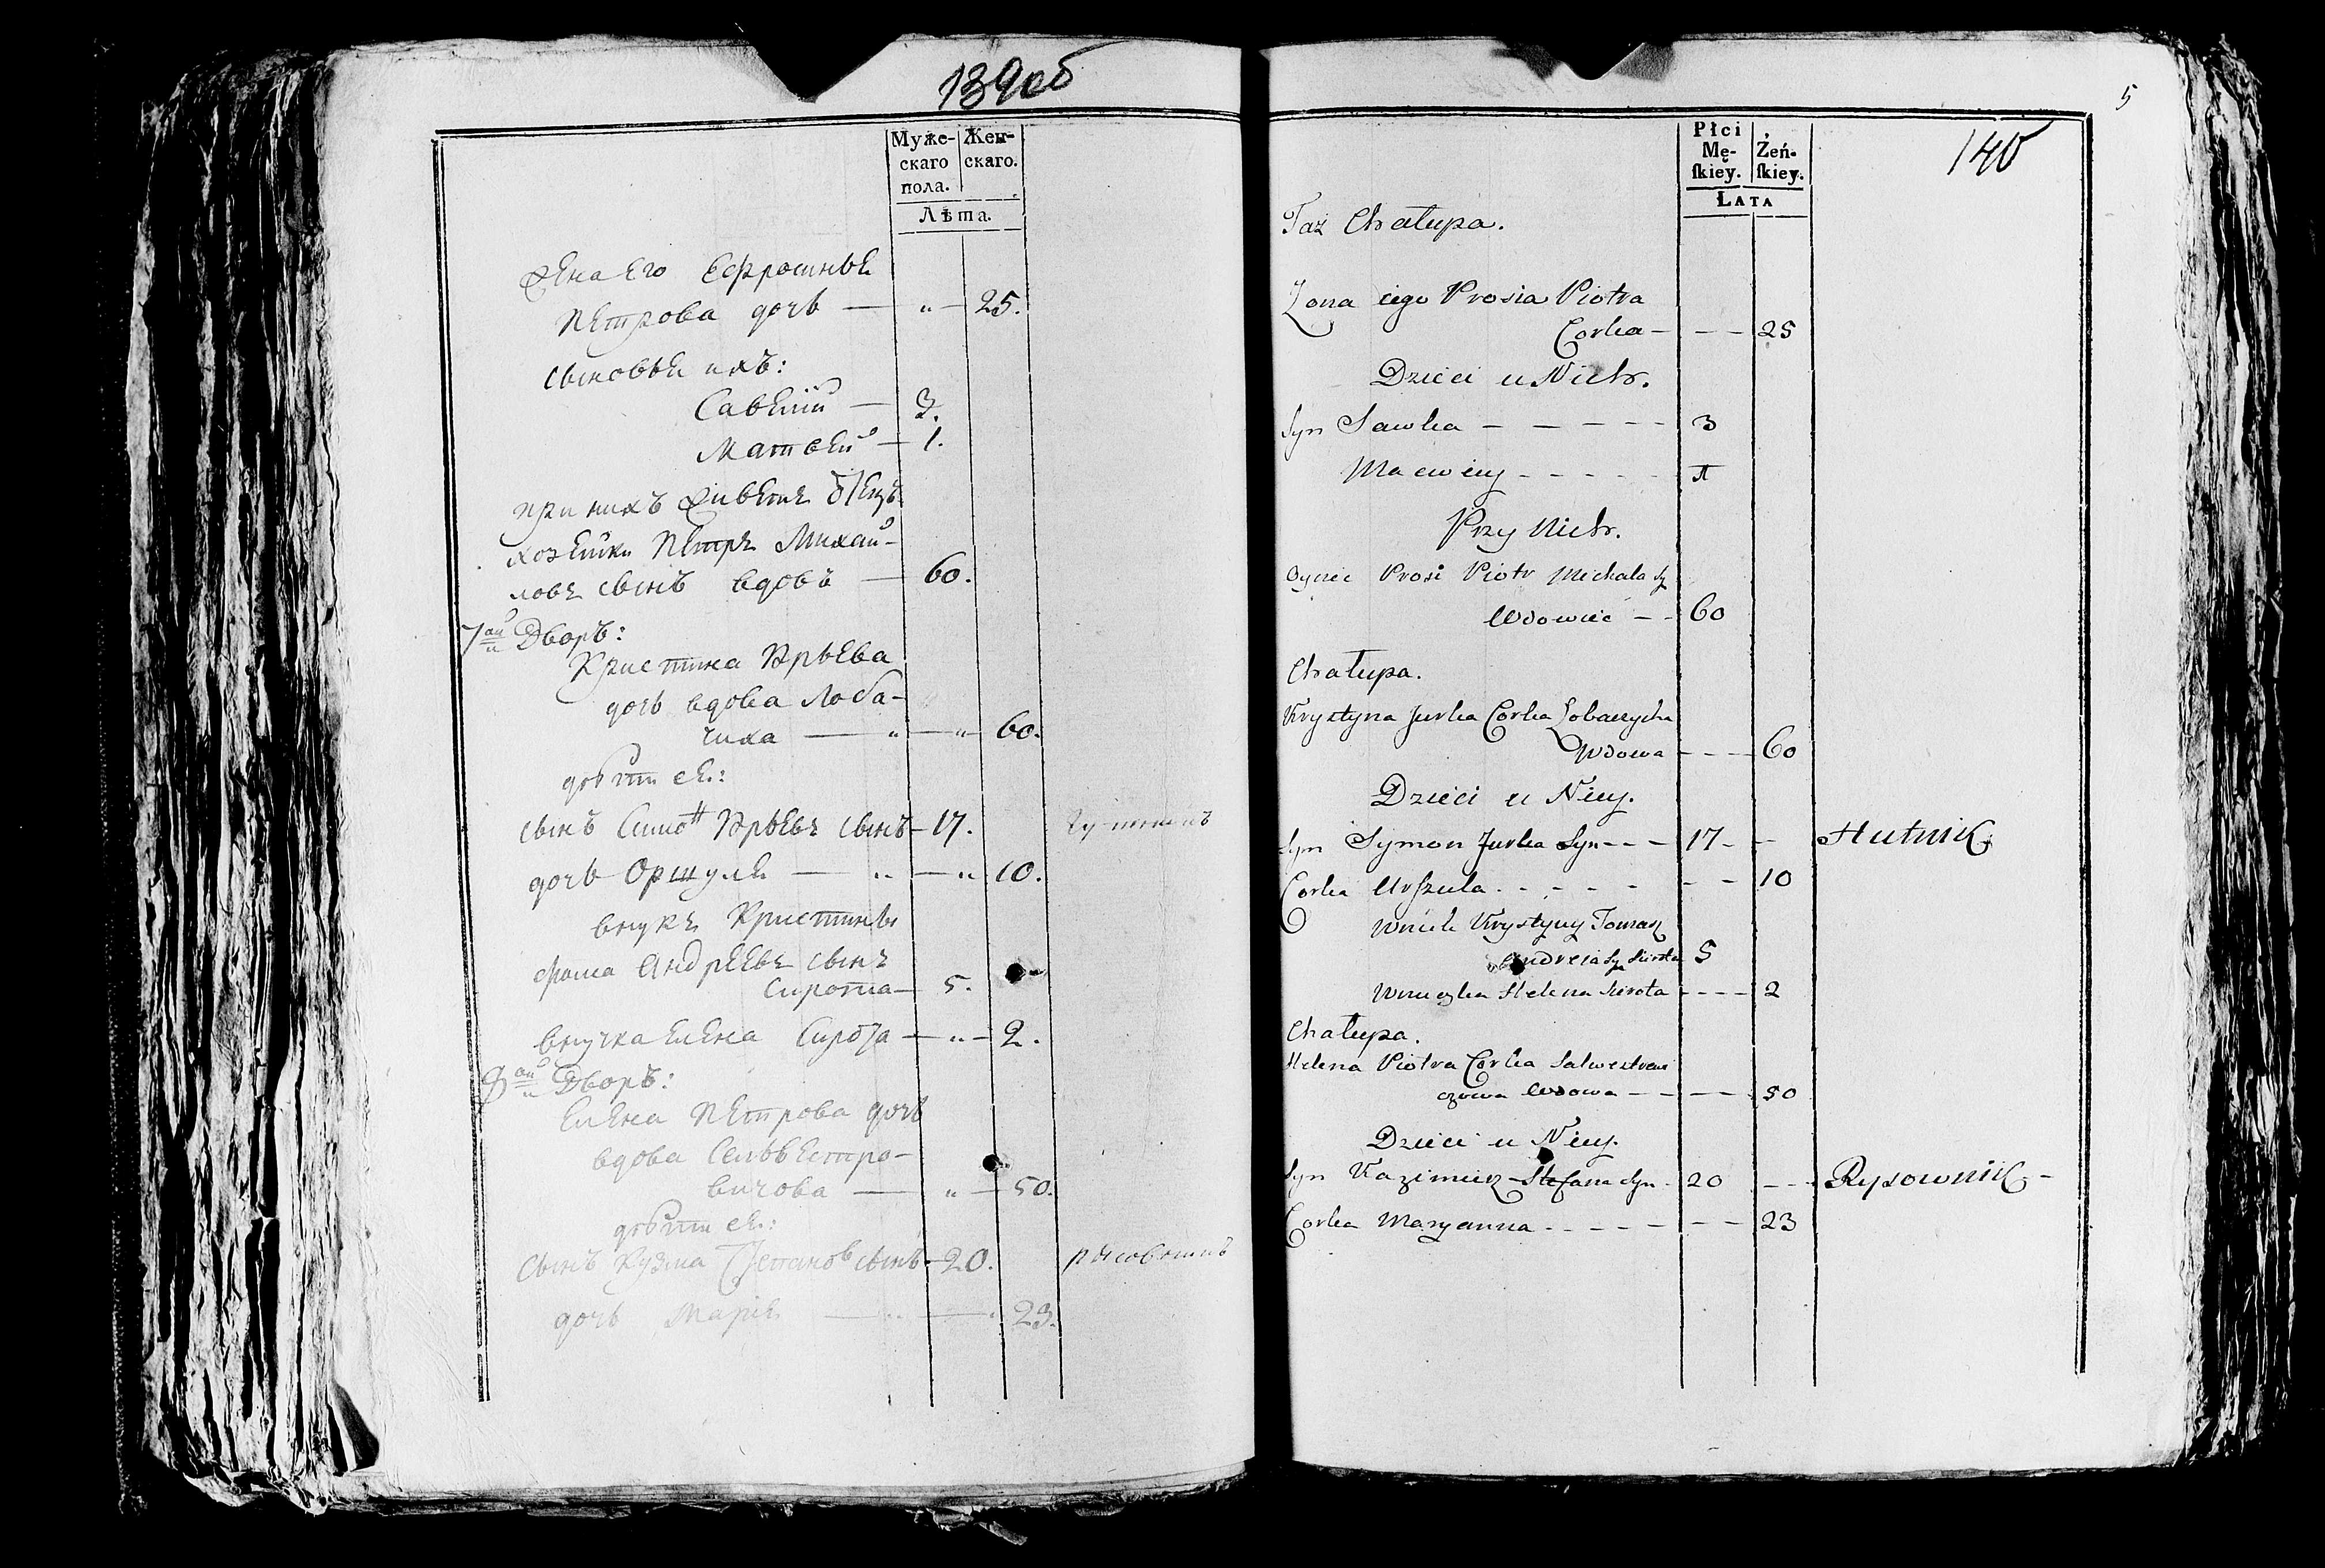 139об
Муже-
скаго
пола.
Жен-
скаго.
Лѣта.
жена его Ефросинья
Петрова дочь — „ — 25.
сыновья ихъ:
Савелій — 3.
Матвей — 1.
при нихъ живетъ отецъ
хозяйки Петръ Михай-
ловъ сынъ вдовъ — 60.
7ой Дворъ:
Кристина Юрьева
дочь вдова Лоба-
чиха — „ — „ 60.
дѣти ея:
сынъ Симонъ Юрьевъ сынъ — 17.
дочь Оршуля — „ — „ 10.
внукъ Кристины
Фома Андреевъ сынъ
Сирота — 5.
внучка Елена Сирота — „ — 2.
8ой Дворъ:
Елена Петрова дочь
вдова Сельвестро-
вичова — „ — 50.
дѣти ея:
сынъ Кузма Степановъ сынъ — 20. рысовникъ
дочь Марія — „ — 23.
5
140
Płci
Mę-
ſkiey.
Żeń-
ſkiey.
Łata
Taż Chałupa.
Żona iego Prosia Piotra
Corka - - - 25
Dzieci u Nich.
Syn Sawka - - - - - 3
Maciey - - - - - 1
Przy Nich.
Oyciec Prosi Piotr Michała Sy
Wdowiec - - 60
Chałupa.
Krystyna Jurka Corka Łobaczycha
Wdowa - - - 60
Dzieci u Niey.
Syn Symon Jurka Syn - - - 17 - - Hutnik
Corka Urszula - - - - - - - 10
Wnuk Krystyny Tomasz
Andreia Sy Sirota 5
Wnuczka Helena Sirota - - - - 2
Chałupa.
Helena Piotra Corka Salwestrowi
czowa Wdowa - - - - 50
Dzieci u Niey.
Syn Kazimierz Stefana Syn - 20 - - - Rysownik -
Corka Maryanna - - - - - - - 23